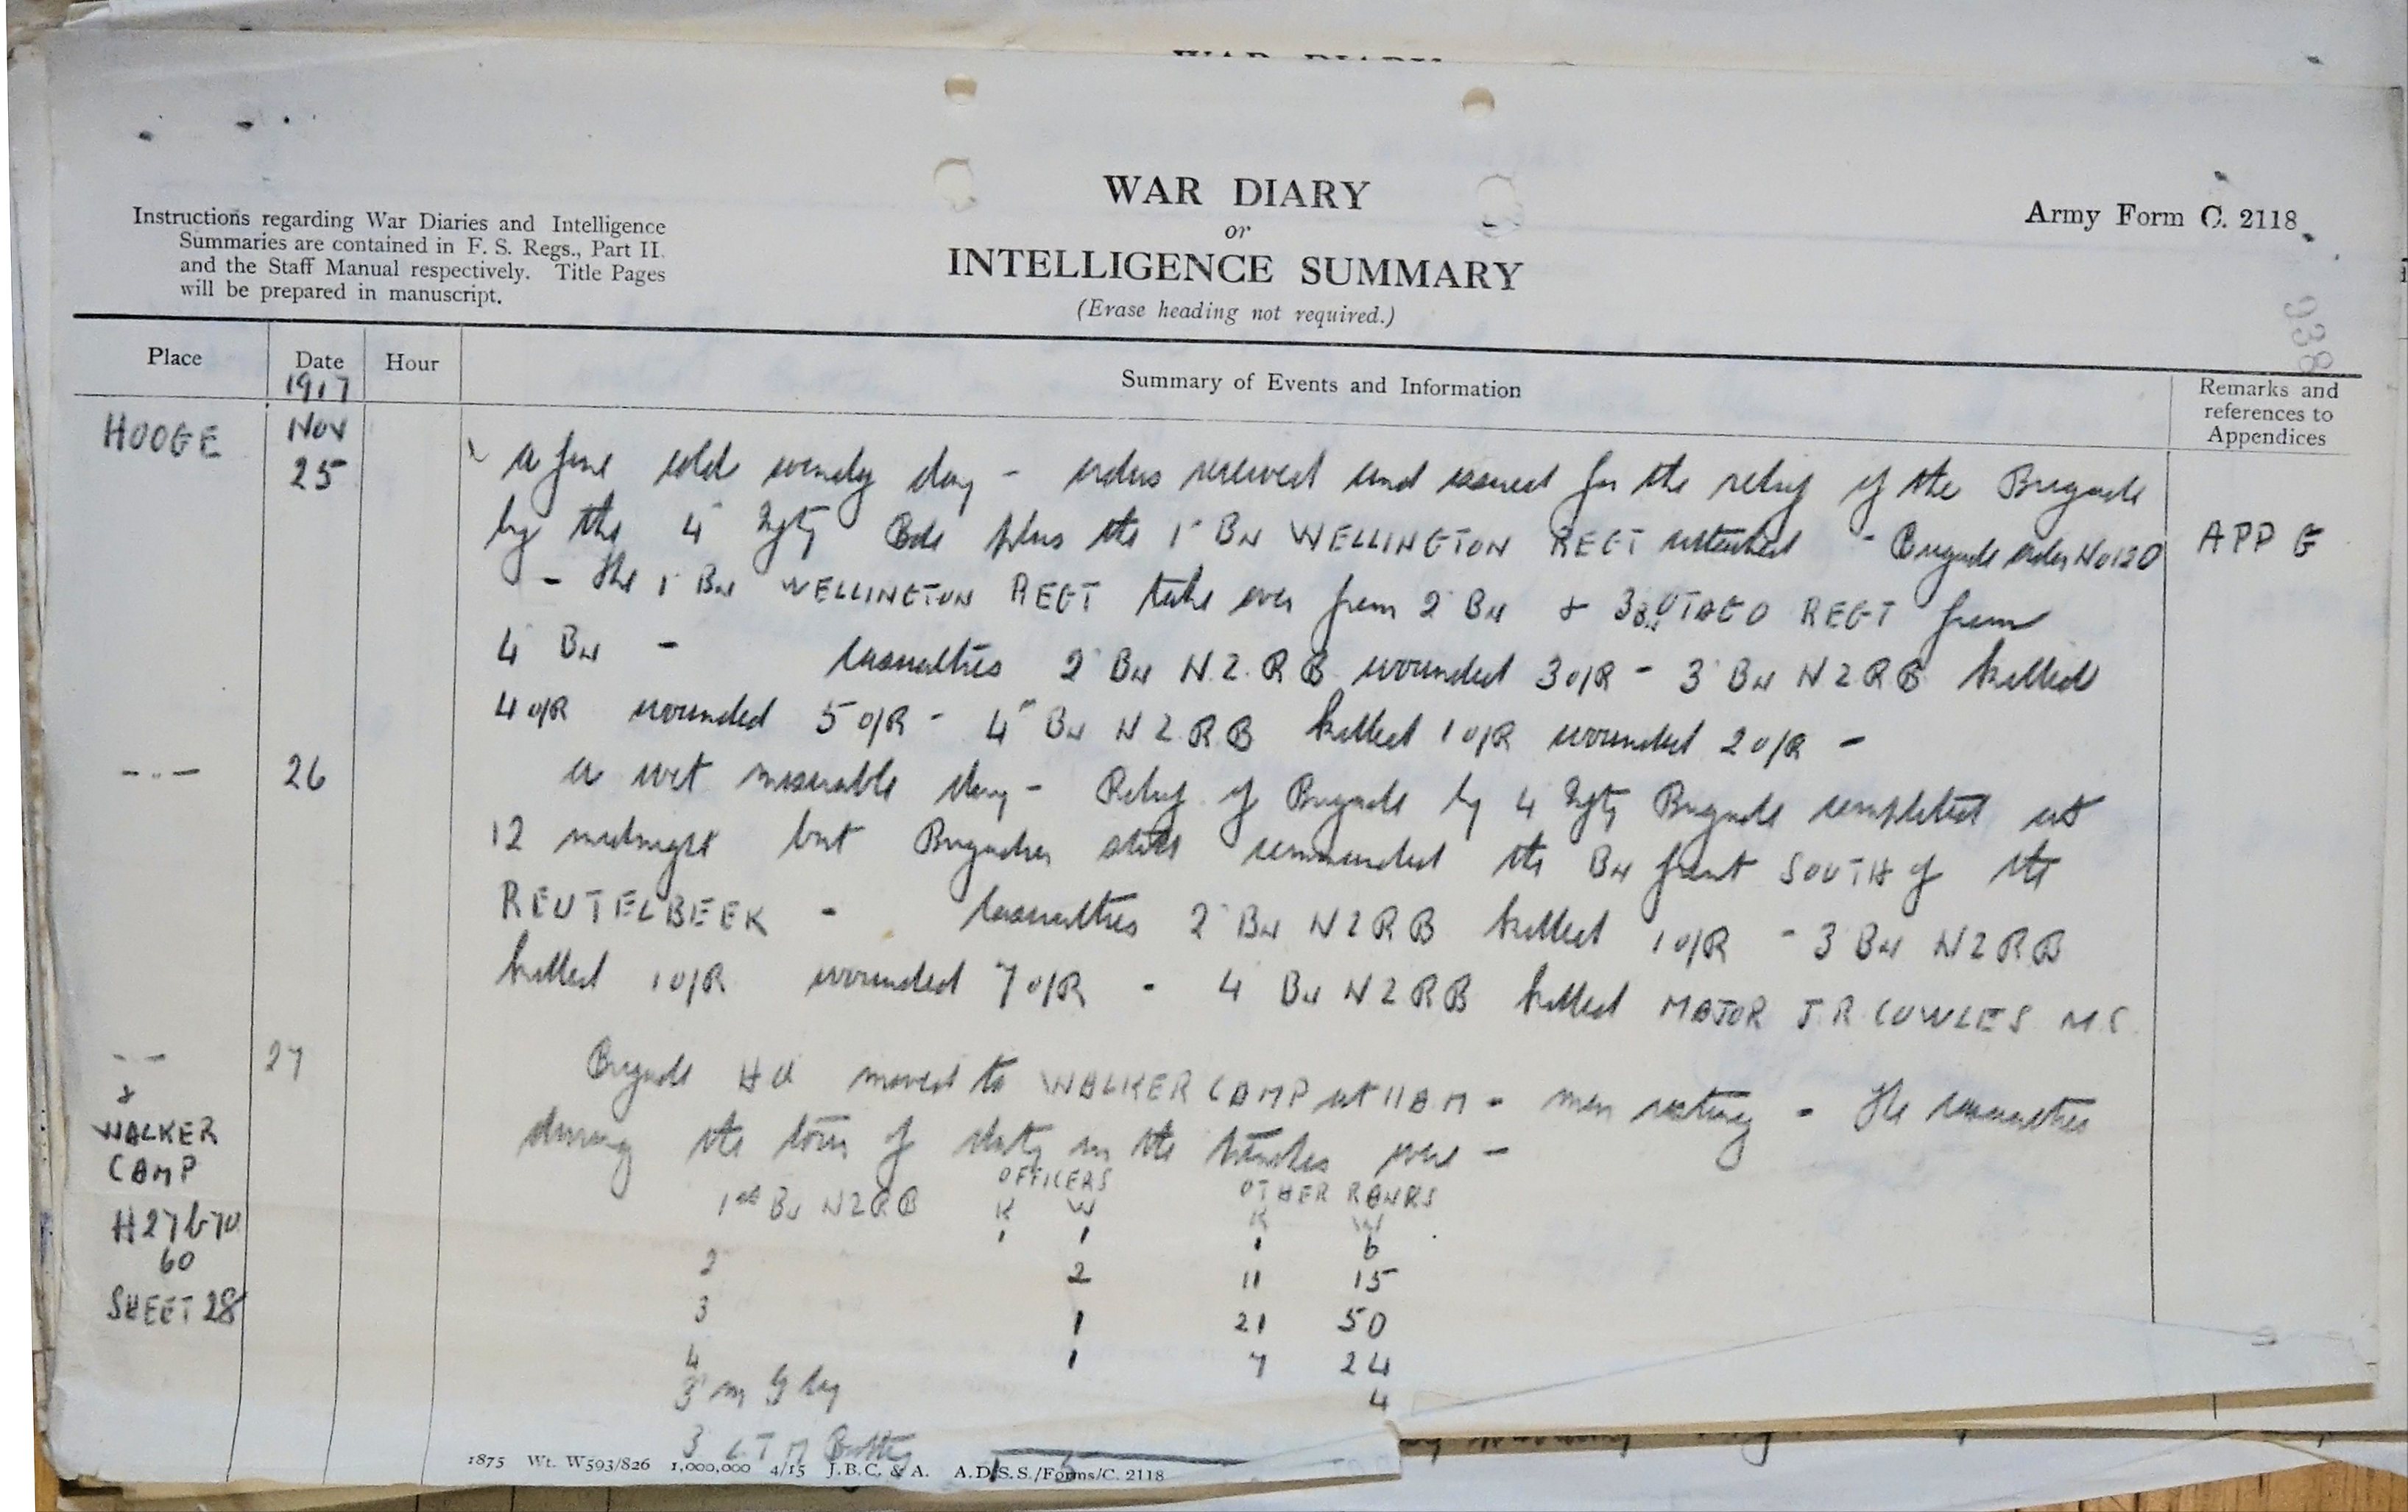 WAR DIARY
Instructions regarding War Diaries and Intelligence
Summaries are contained in F. S. Regs., Part II.
and the Staff Manual respectively. Title Pages
will be prepared in manuscript.
WAR DIARY
or
INTELLIGENCE SUMMARY
(Erase heading not required.)
Army Form C. 2118.
938
Place Date Hour Summary of Events and Information Remarks and references to Appendices
1917
HOOGE Nov 25 A fine cold windy day - orders received and issued for the relief of the Brigade
by the 4 Infty Bde plus the 1 Bn WELLINGTON REGT attached - Brigade order No 120 APP G
- The 1 Bn WELLINGTON REGT take over from 2 Bn & 3 Bn OTAGO REGT from
4 Bn - Casualties 2 Bn N.Z.R.B wounded 3 O/R - 3 Bn N Z R B killed
4 O/R wounded 5 O/R - 4 Bn N Z R B killed 1 O/R wounded 2 O/R -
-"- 26 A wet miserable day - Relief of Brigade by 4 Infty Brigade completed at
12 midnight but Brigadier still commanded the Bn front SOUTH of the
REUTELBEEK - Casualties 2 Bn N Z R B killed 1 O/R - 3 Bn N Z R B
killed 1 O/R wounded 7 O/R - 4 Bn N Z R B killed MAJOR J R COWLES M.C.
-"- 27 Brigade HQ moved to WALKER CAMP at 11 A M - men resting - The casualties
& during the tour of duty in the trenches were -
WALKER
CAMP
H27b70
60
SHEET 28
OFFICERS OTHER RANKS
1st Bn N Z R B K W K W
1 1 1 6
2 2 11 15
3 1 21 50
4 1 7 24
3 M G Coy 4
3 L T M Battery
1875 Wt. W593/826 1,000,000 4/15 J.B.C. & A. A.D.S.S./Forms/C. 2118